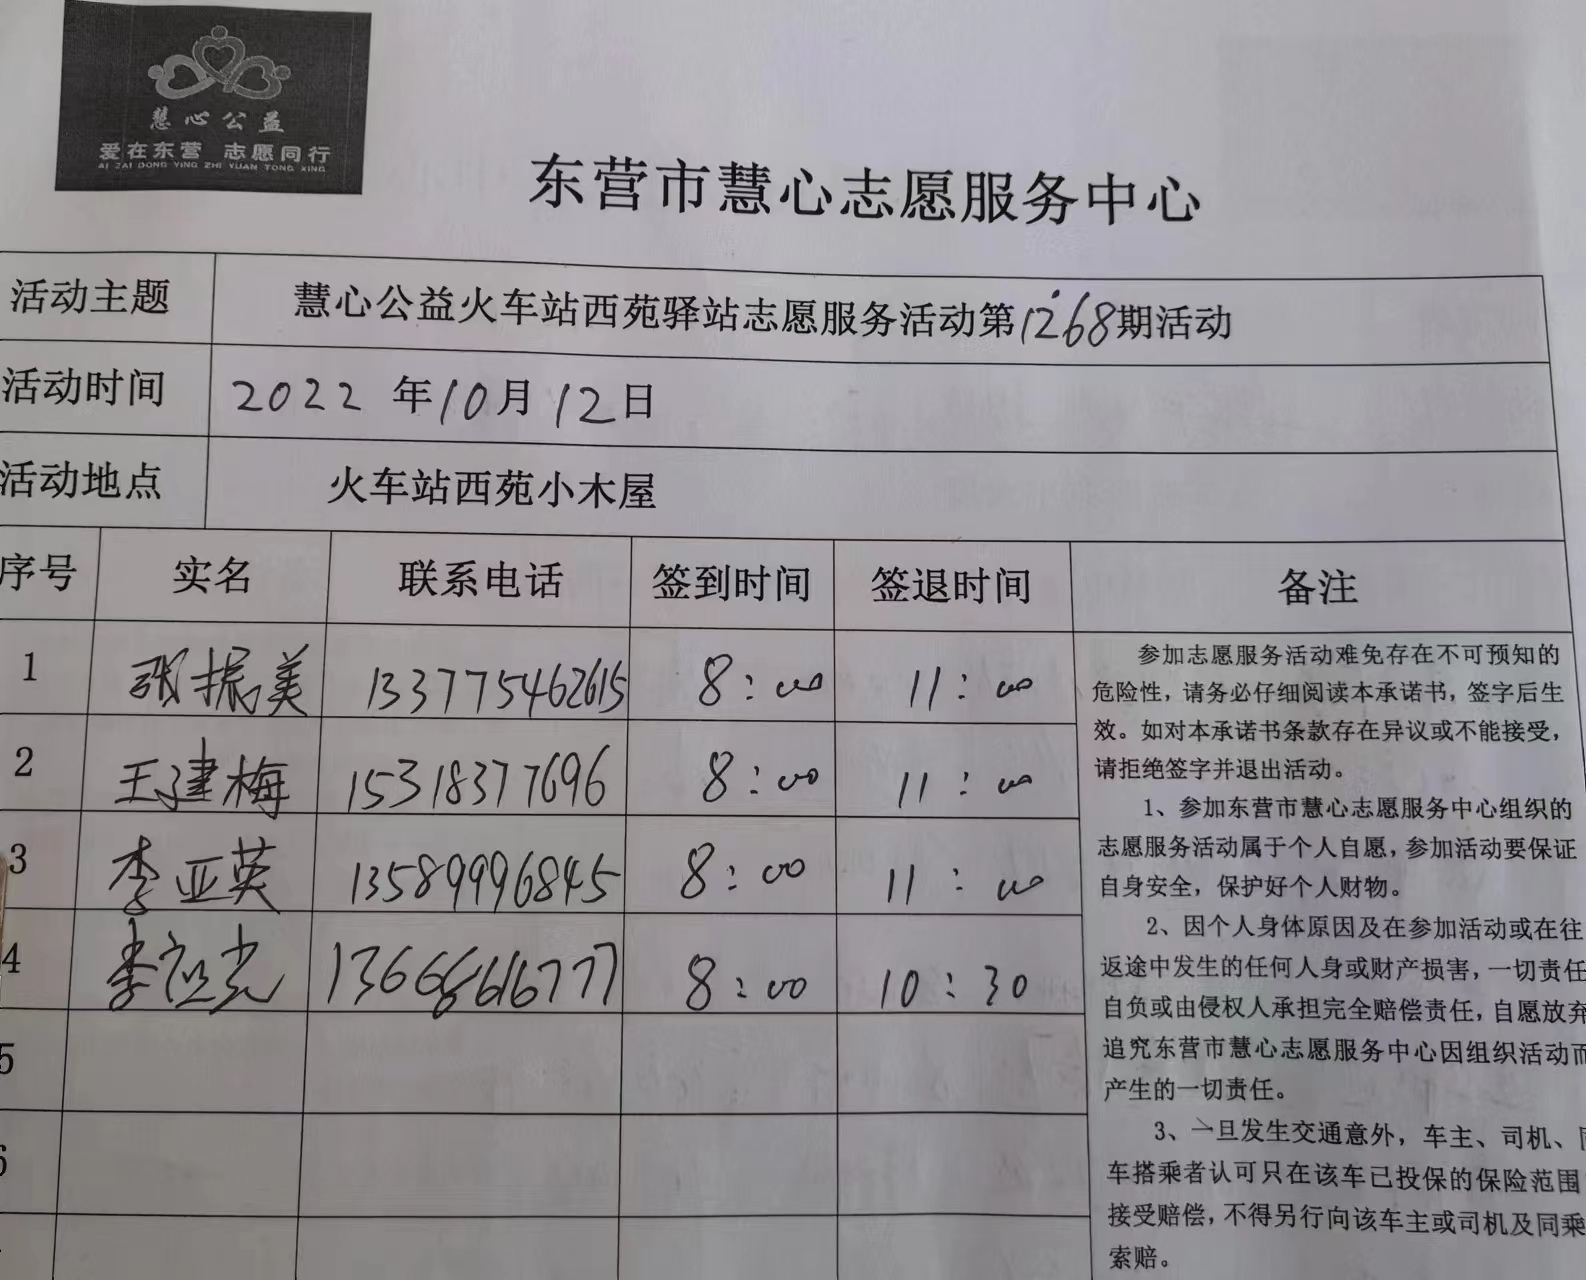 慧心公益
爱在东营 志愿同行
AI ZAI DONG YING ZHI YUAN TONG XING
东营市慧心志愿服务中心
活动主题 慧心公益火车站西苑驿站志愿服务活动第1268期活动
活动时间 2022 年10月12日
活动地点 火车站西苑小木屋
序号 实名 联系电话 签到时间 签退时间 备注
1 张振美 133775462615 8:00 11:00
2 王建梅 15318377696 8:00 11:00
3 李亚英 13589996845 8:00 11:00
4 李 光 13666616777 8:00 10:30
5
6
参加志愿服务活动难免存在不可预知的
危险性，请务必仔细阅读本承诺书，签字后生
效。如对本承诺书条款存在异议或不能接受，
请拒绝签字并退出活动。
1、参加东营市慧心志愿服务中心组织的
志愿服务活动属于个人自愿，参加活动要保证
自身安全，保护好个人财物。
2、因个人身体原因及在参加活动或在往
返途中发生的任何人身或财产损害，一切责任
自负或由侵权人承担完全赔偿责任，自愿放弃
追究东营市慧心志愿服务中心因组织活动而
产生的一切责任。
3、一旦发生交通意外，车主、司机、同
车搭乘者认可只在该车已投保的保险范围
接受赔偿，不得另行向该车主或司机及同乘
索赔。